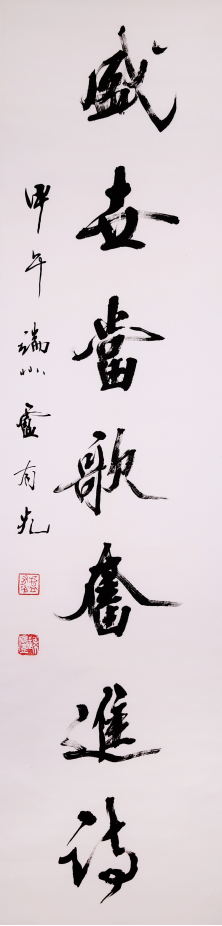 盛世當歌奮進詩
甲午端州盧有光